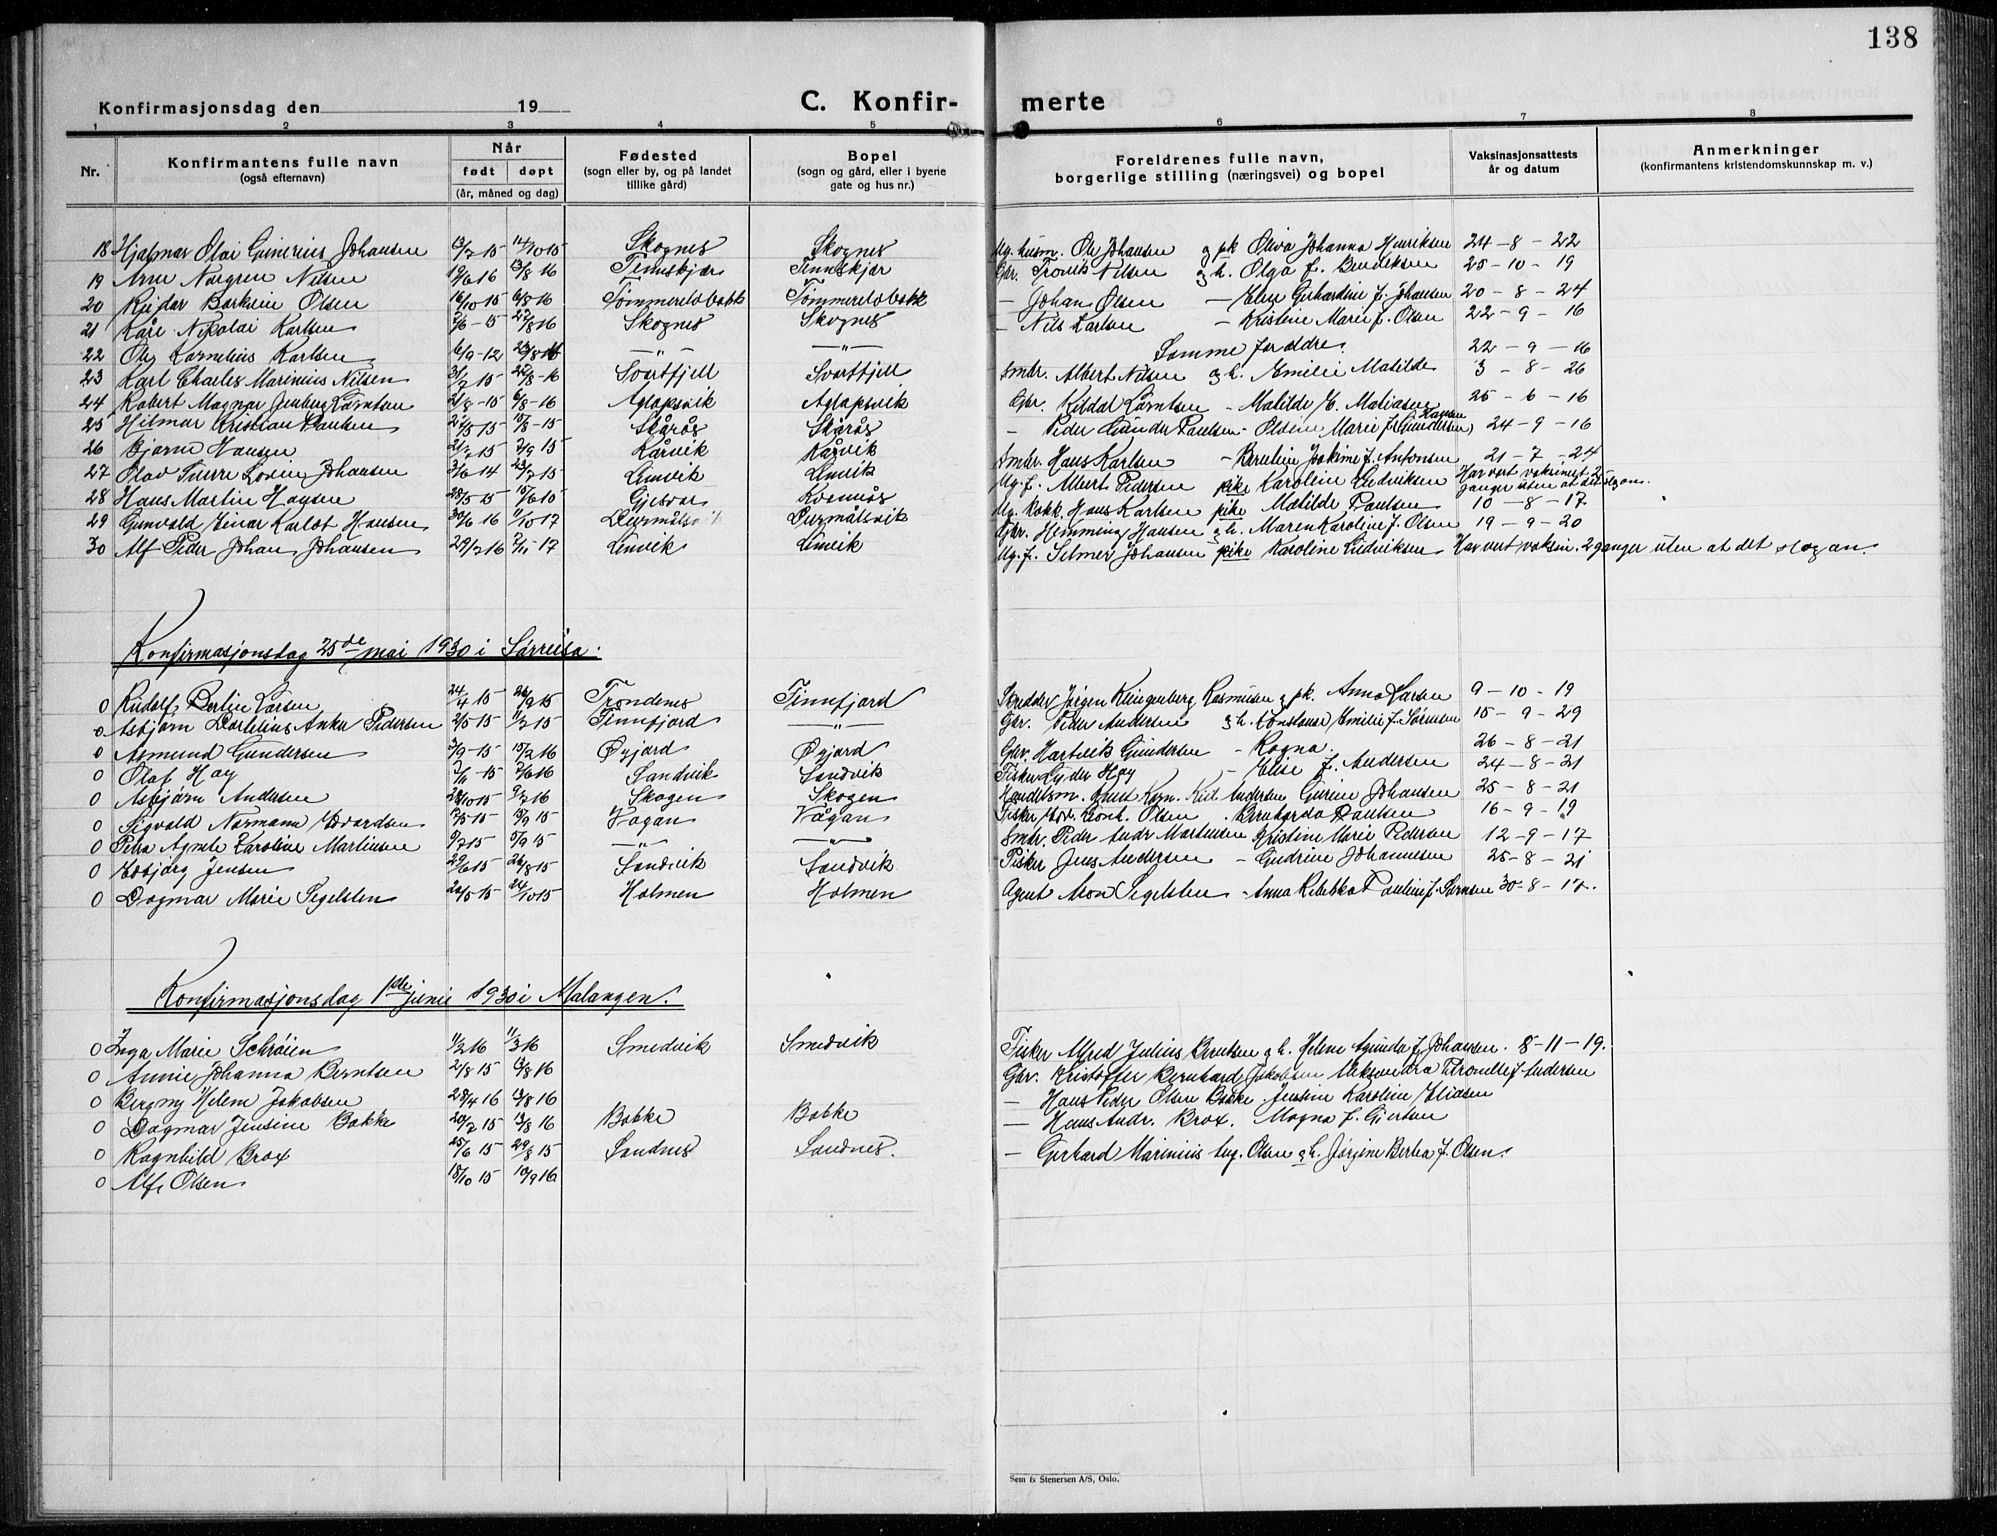 138
Konfirmasjonsdag den 19
C. Konfir- merte
1 2 3 4 5 6 7 8
Nr.
Konfirmantens fulle navn
(også efternavn)
Når
født døpt
(år, måned og dag)
Fødested
(sogn eller by, og på landet
tillike gård)
Bopel
(sogn og gård, eller i byerie
gate og hus nr.)
Foreldrenes fulle navn,
borgerlige stilling (næringsvei) og bopel
Vaksinasjonsattests
år og datum
Anmerkninger
(konfirmantens kristendomskunnskap m. v.)
18 Hjalmar Olai Johansen 13/7 15 14/10 15 Skognes Skognes Ug. husm. Ole Johansen og pk Oliva Johanna Henriksen 24-8-22
19 Arne Norgren Nilsen 19/6 16 13/8 16 Finnskjær Gbr. Nilsen og h. Olga f. Bendiksen 25-10-19
20 Reidar Olsen 16/10 15 6/8 16 Tømmerelvbakk Tømmerelvbakk — Johan Olsen — Elise Gerhardine f. Johansen 20-8-24
21 Kåre Nikolai Karlsen 27/8 16 Skognes Skognes — Nils Karlsen — Kristine Marie f. Olsen 22-9-16
22 Ole Kornelius Karlsen 6/9-12 —"— —"— Samme foreldre. 22-9-16
23 Karl Charles Marinius Nilsen 31/7 15 Svartfjell Svartfjell Smbr. Albert Nilsen og h. Emilie Matilde 3-8-26
24 Robert Magnar Jenberg Lorntsen 21/8-15 6/8-16 Aglapsvik Aglapsvik Gbr. Lorntsen - Matilde 25-6-16
25 Hilmar Kristian Paulsen 15/8-15 Skårås Skårås — Peder Paulsen - Olsine Marie Hansen 24-9-16
26 Bjarne Hansen 21/7 15 Kårvik Kårvik Smbr. Hans Karlsen - Berntine Joakime f. Antonsen 21-7-24
27 Olav Johansen 3/6 14 23/7 15 Lenvik Lenvik Ug. f. Albert Pedersen pike Karoline Ludviksen Har vert vaksinert 2 ganger uten at det slog an.
28 Hans Martin Hansen 28/5 15 Kvannås Ug. kokk. Hans Karlsen pike Matilde Paulsen 10-8-17
29 Gunvald Einar Karlot Hansen 30/6 16 Durmålsvik Durmålsvik Gbr. Hemming Hansen og h. Maren Karoline f. Olsen 19-9-20
30 Alf Peder Johan Johansen 29/7 16 Lenvik Lenvik Ug. f. Selmer Johansen pike Karoline Ludviksen Har vert vaksin. 2 ganger uten at det slog an.
Konfirmasjonsdag 25de mai 1930 i Sørreisa.
0 Rudolf Berlin Larsen 24/4 15 26/9 15 Trondenes Finnfjord Skredder Jørgen Klingenberg Rasmussen og pk. Anna Larsen 9-10-19
0 Asbjørn Anker Pedersen 2/5 15 11/7 15 Finnfjord —"— Gbr. Peder Andersen og h. Constanse Emilie f. Sørensen 15-9-29
0 Asmund Gundersen 3/9-15 Øyjord Øyjord Gbr. Hartvik Gundersen - Ragna. 26-8-21
0 Olaf Hay Sandvik Sandvik Fisker Lyder Hay - Elise f. Andersen 24-8-21
0 Asbjørn Andersen 28/10 15 9/7 16 Skogen Skogen Handelsm. Andersen Gurine Johansen 25-8-21
0 Sigvald Normann Edvardsen 7/5 15 Vågan Vågan Fisker Olsen - Bernharda Paulsen 16-9-19
0 Petra Agnete Karoline Martinsen 5/9 15 —"— —"— Smbr. Peder Andr. Martinsen Kristine Marie Pedersen 12-9-17
0 Esbjørg Jensen 29/6 15 26/8 15 Sandvik Sandvik Fisker Jens Andersen - Gudrine Johannesen 25-8-21
0 Dagmar Marie Tegelsten 24/10 15 Holmen Holmen Agent Tegelsten - Anna Rebekka Pauline f. Sørensen 30-8-17.
Konfirmasjonsdag 1ste juni 1930 i Malangen.
0 Inga Marie Schrøien 11/2 16 11/3 16 Smedvik Smedvik Fisker Alfred Julius Berntsen og h. Helene f. Johansen. 8-11-19.
0 Annie Johanna Berntsen 2/8 15 13/8 16 Gbr. Kristoffer Bernhard Jakobsen Aleksandra Petronelle f. Andersen
0 Bergny Helene Jakobsen 28/4 16 13/8 16 — Hans Peder Olsen Bakke Jensine Karoline Eliasen
0 Dagmar Jensine Bakke 20/7 15 13/8 16 Bakke Bakke — Hans Andr. Brox. Magna f. Giertsen
0 Ragnhild Brox 25/6 15 29/8 15 Sandnes Sandnes. — Gerhard Marinius Aug. Olsen og h. Jørgine Berlea f. Olsen.
0 Alf Olsen 18/10 15 10/9 16
Sem & Stenersen A/S, Oslo.